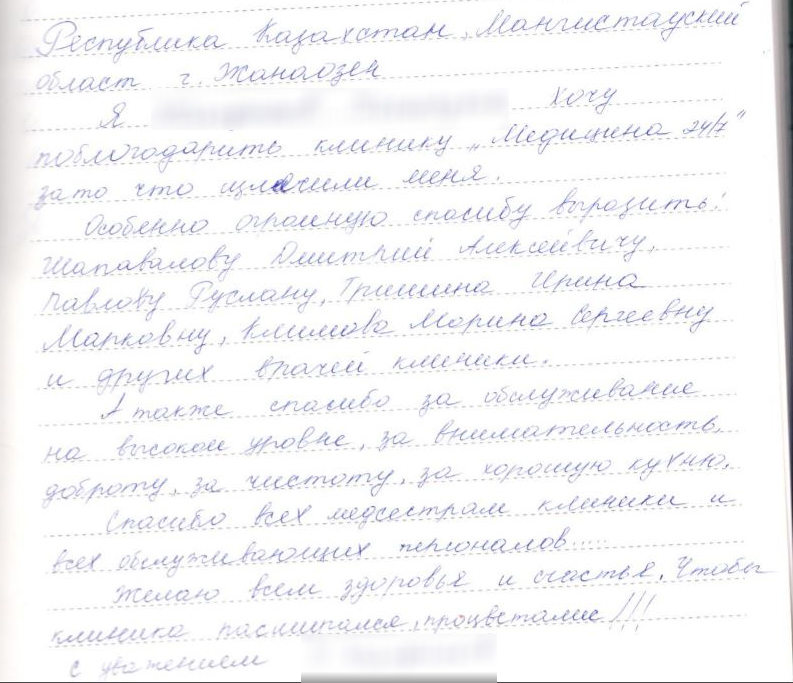 Республика Казахстан, Мангистауский
област г. Жанаозен
Я хочу
поблогодарить клинику „Медицина 24/7"
за то что излечили меня.
Особенно огромную спасибу выразить:
Шапавалову Дмитрий Алексеевичу,
Павлову Руслану, Гришина Ирина
Марковну, Климова Морина Сергеевну
и других врачей клиники.
А также спасибо за обслуживание
на высоком уровне, за внимательность,
доброту, за чистоту, за хорошую кухню.
Спасибо всех медсестрам клиники и
всех обслуживающих персоналов.....
Желаю всем здоровья и счастья. Чтобы
клиника расшипался, процветалие!!!
с уважением